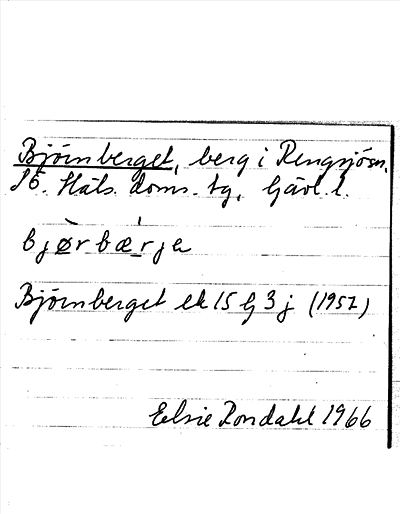 Björnberget, berg i Rengsjö sn,
S G. Häls. doms. tg, Gävl. l.
bjørbærja
Björnberget ek 15 G 3 j (1957)
Elsie Rondahl 1966